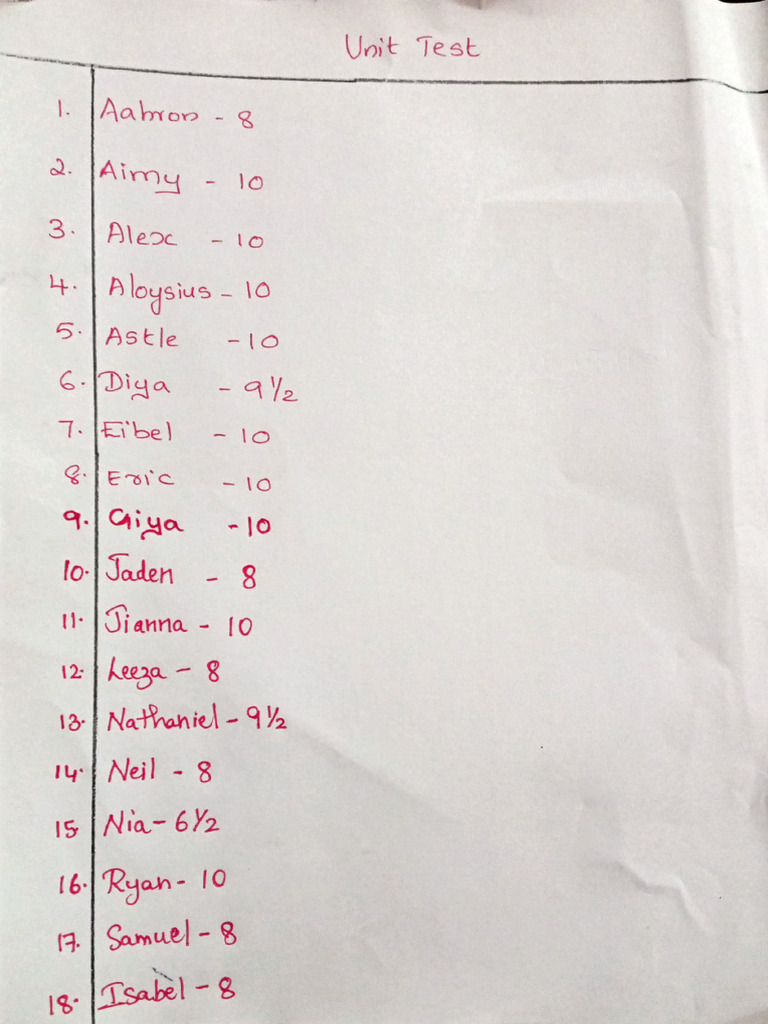 Unit Test
1. Aabron - 8
2. Aimy - 10
3. Alex - 10
4. Aloysius - 10
5. Astle - 10
6. Diya - 9 1/2
7. Eibel - 10
8. Eric - 10
9. Giya - 10
10. Jaden - 8
11. Jianna - 10
12. Leeza - 8
13. Nathaniel - 9 1/2
14. Neil - 8
15 Nia - 6 1/2
16. Ryan - 10
17. Samuel - 8
18. Isabel - 8